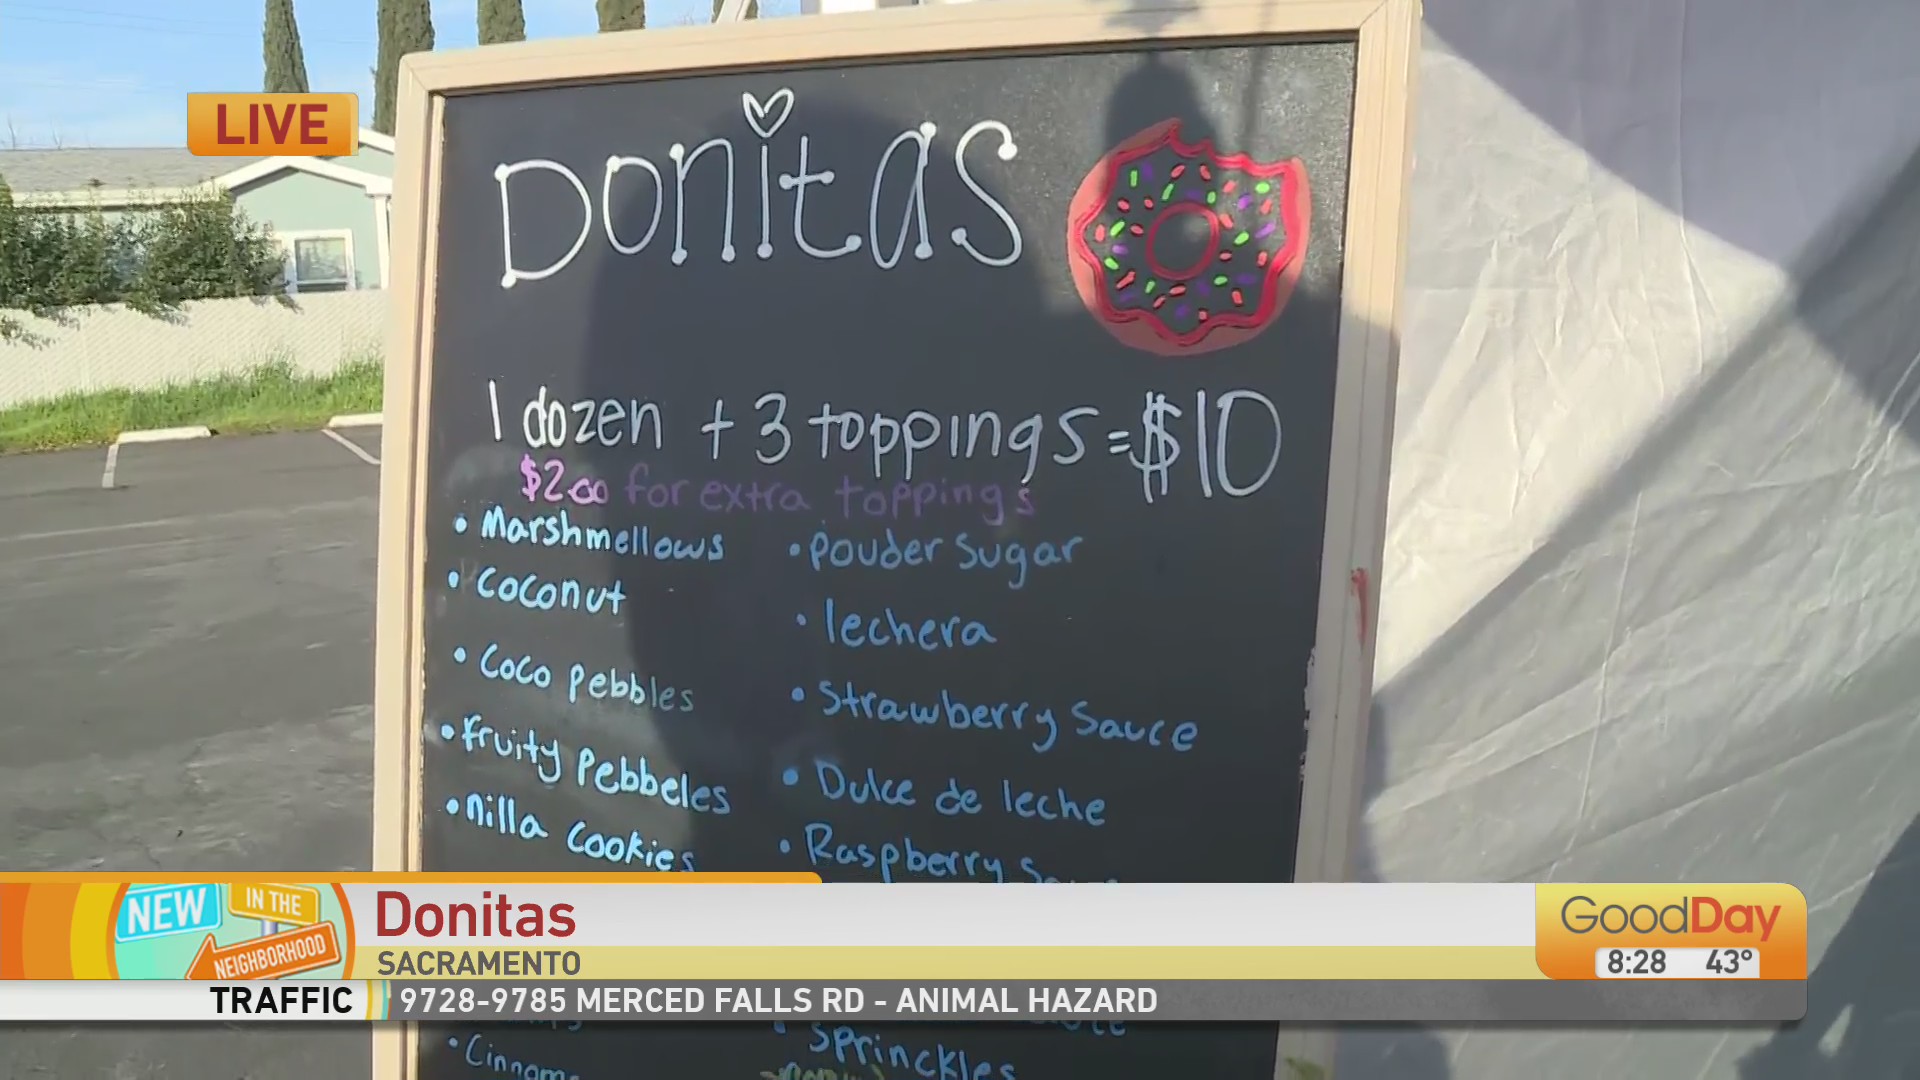 LIVE
Donitas
1 dozen + 3 toppings = $10
$2.00 for extra toppings
• Marshmellows
• Coconut
• Coco pebbles
• fruity Pebbeles
• nilla cookies
• Pouder Sugar
• lechera
• Strawberry Sauce
• Dulce de leche
• Raspberry
NEW IN THE NEIGHBORHOOD
Donitas
SACRAMENTO
GoodDay
8:28 43°
TRAFFIC 9728-9785 MERCED FALLS RD - ANIMAL HAZARD
• Sprinckles